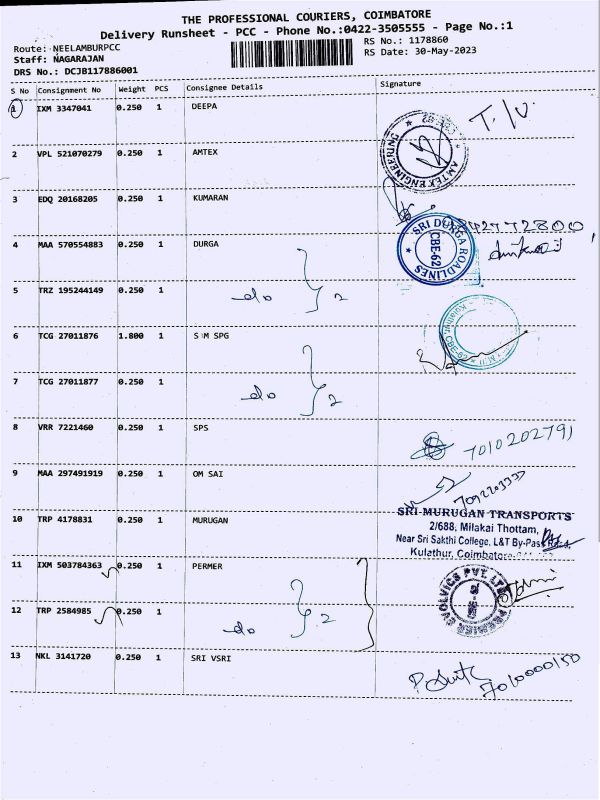 THE PROFESSIONAL COURIERS, COIMBATORE
Delivery Runsheet - PCC - Phone No.:0422-3505555 - Page No.:1
Route: NEELAMBURPCC
RS No.: 1178860
Staff: NAGARAJAN
RS Date: 30-May-2023
DRS No.: DCJB117886001
S No Consignment No Weight PCS Consignee Details Signature
1 IXM 3347041 0.250 1 DEEPA
2 VPL 521070279 0.250 1 AMTEX
AMTEX ENGINEERING
3 EDQ 20168205 0.250 1 KUMARAN
4 MAA 570554883 0.250 1 DURGA
SRI DURGA ROADLINES
CBE-62
5 TRZ 195244149 0.250 1
do } 2
6 TCG 27011876 1.800 1 S M SPG
7 TCG 27011877 0.250 1
do } 2
8 VRR 7221460 0.250 1 SPS
7010202791
9 MAA 297491919 0.250 1 OM SAI
10 TRP 4178831 0.250 1 MURUGAN
SRI MURUGAN TRANSPORTS
2/688, Milakai Thottam,
Near Sri Sakthi College, L&T By-Pass Road,
Kulathur, Coimbatore
11 IXM 503784363 0.250 1 PERMER
12 TRP 2584985 0.250 1
do } 2
13 NKL 3141720 0.250 1 SRI VSRI
7010000150